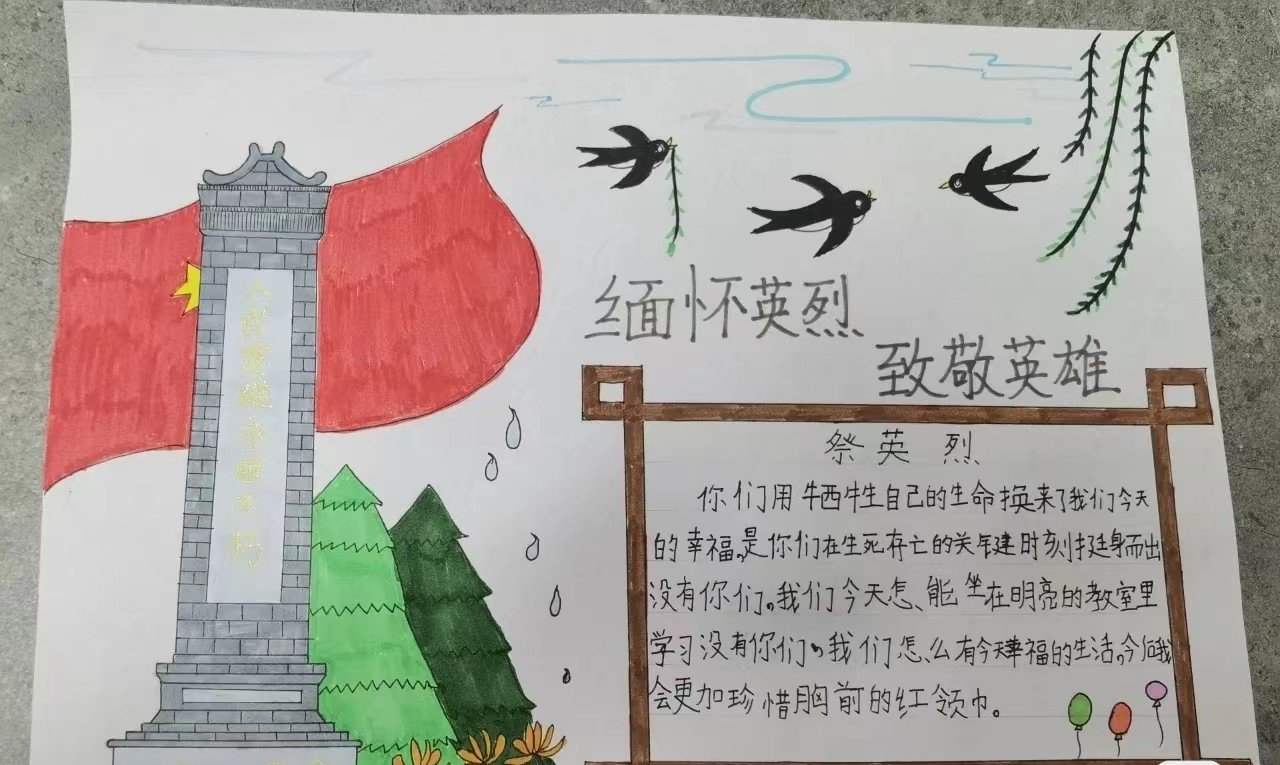 人民英雄永垂不朽
缅怀英烈
致敬英雄
祭英烈
你们用牺牲自己的生命换来了我们今天
的幸福。是你们在生死存亡的关键时刻挺身而出
没有你们。我们今天怎能坐在明亮的教室里
学习没有你们,我们怎么有今天幸福的生活。今后我
会更加珍惜胸前的红领巾。